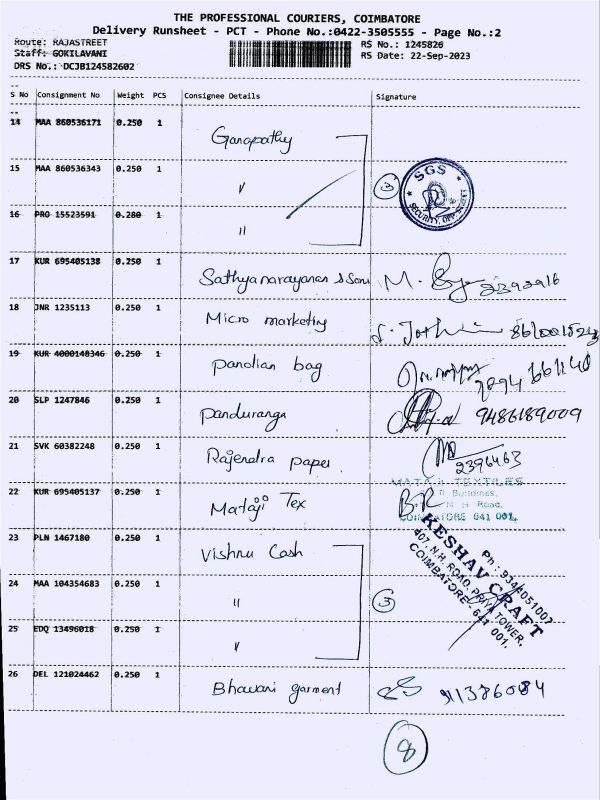 THE PROFESSIONAL COURIERS, COIMBATORE
Delivery Runsheet - PCT - Phone No.:0422-3505555 - Page No.:2
Route: RAJASTREET
Staff: GOKILAVANI
DRS No.: DCJB124582602
RS No.: 1245826
RS Date: 22-Sep-2023
S No Consignment No Weight PCS Consignee Details Signature
14 MAA 860536171 0.250 1 Ganapathy
15 MAA 860536343 0.250 1 "
3
SGS
SECURITY
16 PRO 15523591 0.280 1 "
17 KUR 695405138 0.250 1 Sathyanarayanan & Sons M. 2392916
18 JNR 1235113 0.250 1 Micro marketing
19 KUR 4000148346 0.250 1 pandian bag
20 SLP 1247846 0.250 1 panduranga 9486189009
21 SVK 60382248 0.250 1 Rajendra paper 2396463
22 KUR 695405137 0.250 1 Mataji Tex B.R
MATAJI TEXTILES
Buildings,
N H Road,
COIMBATORE 641 001.
23 PLN 1467180 0.250 1 Vishnu Cash
KESHAV CRAFT
407, N.H. ROAD, PRIYA TOWER,
COIMBATORE - 641 001.
Ph : 9344051007
24 MAA 104354683 0.250 1 " 3
25 EDQ 13496018 0.250 1 "
26 DEL 121024462 0.250 1 Bhavani garment
8